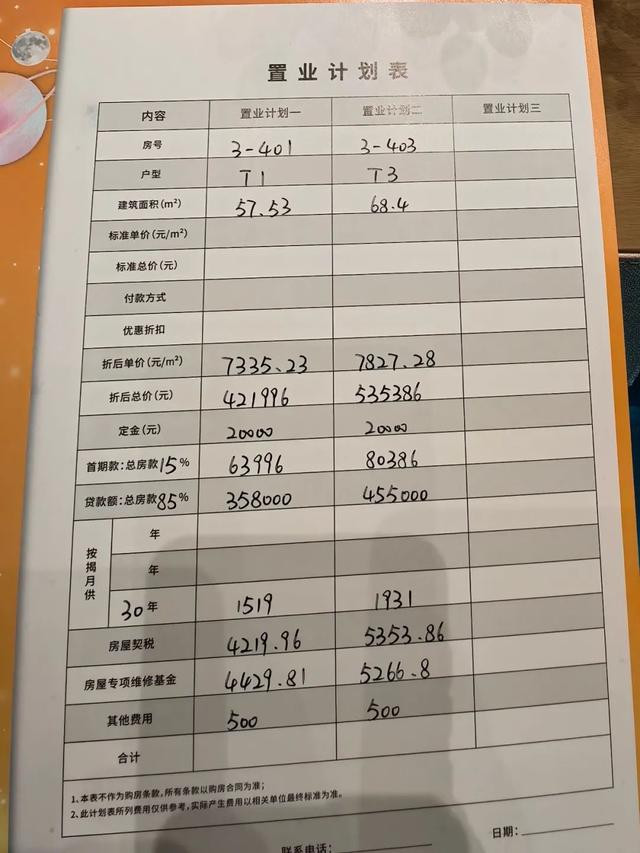 置业计划表
内容 置业计划一 置业计划二 置业计划三
房号 3-401 3-403
户型 T1 T3
建筑面积(m²) 57.53 68.4
标准单价(元/m²)
标准总价(元)
付款方式
优惠折扣
折后单价(元/m²) 7335.23 7827.28
折后总价(元) 421996 535386
定金(元) 20000 20000
首期款:总房款15% 63996 80386
贷款额:总房款85% 358000 455000
按揭月供
年
年
30年 1519 1931
房屋契税 4219.96 5353.86
房屋专项维修基金 4429.81 5266.8
其他费用 500 500
合计
1、本表不作为购房条款,所有条款以购房合同为准;
2、此计划表所列费用仅供参考,实际产生费用以相关单位最终标准为准。
联系电话: 日期: